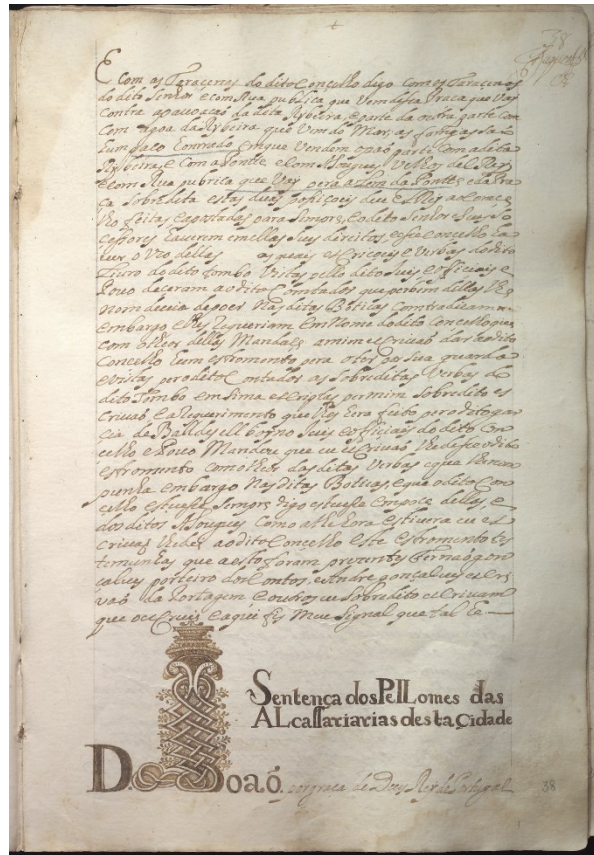 38
E com as Taracenas do dito Concelho digo com as Taracenas
do dito Senhor e com Rua publica que Vem desta Praca que Vay
contra a povoação da dita Rybeira, e parte da outra parte com
com agoa da Rybeira que Vem do Mar, as
hum em que Vendem o paõ parte com a dita
Rybeira, e Com a Ponte e com Açougues Velhos del Rey
e com Rua pubrica que Vay pera alem da Ponte, e da Pra
ça Sobredita estas duas que el Rey
feitas e pera Sempre, e o dito Senhor e Seus So
cessores haverem em ellas Seus direitos, e esse Concelho ha
ver o Uzo dellas as quais e Verbas do dito
Livro do dito Tombo Vistas pello dito Juis e officiais e
Povo deceram ao dito Contador que por bem dellas lhes
nom devia de poer Nas ditas Boticas Contradicam nem
embargo e lhes Requeriam em Nome do dito Concelho que
com o theor dellas Mandase a mim escrivaõ dar ao dito
Concelho hum estromento pera o ter por Sua guarda
e vistas per o dito Contador as Sobreditas Verbas do
dito Tombo em Sima escriptas per mim Sobredito es
crivaõ e a Requerimento que lhes era feito per o dito gar
cia de Juis e officiaes do dito Con
celho e Povo Mandou que eu escrivaõ lhe desse o dito
estromento com o theor das ditas Verbas e que lhe nom
punha embargo Nas ditas Boticas, e que o dito Con
celho estivese Sempre digo estivese em posse dellas, e
dos ditos Açougues como athe hora estivera eu es
crivaõ lhe dei ao dito Concelho este estromento tes
temunhas que a esto foram prezentes Fernaõ gon
çalves porteiro dos Contos, e Andre gonçalves escri
vaõ da Portagem e outros eu Sobredito escrivam
que o escrevi e aqui fis Meu Signal que tal he.
Sentença dos Pellomes das
ALcassariarias desta Çidade
D. Joaõ. por graca de Deos Rey de Portugal
38